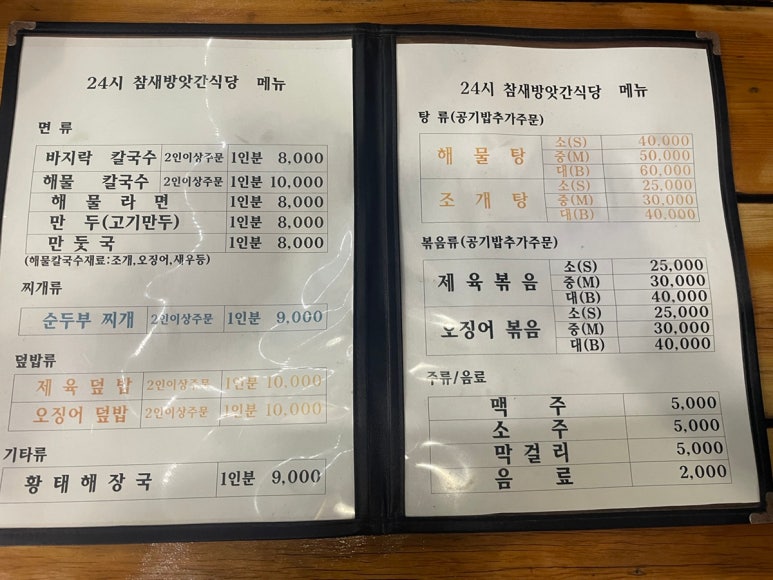 24시 참새방앗간식당 메뉴
면 류
바지락 칼국수 2인이상주문 1인분 8,000
해물 칼국수 2인이상주문 1인분 10,000
해 물 라 면 1인분 8,000
만 두(고기만두) 1인분 8,000
만 둣 국 1인분 8,000
(해물칼국수재료:조개,오징어,새우등)
찌개류
순두부 찌개 2인이상주문 1인분 9,000
덮밥류
제 육 덮 밥 2인이상주문 1인분 10,000
오징어 덮밥 2인이상주문 1인분 10,000
기타류
황 태 해 장 국 1인분 9,000
24시 참새방앗간식당 메뉴
탕 류(공기밥추가주문)
해 물 탕
소(S) 40,000
중(M) 50,000
대(B) 60,000
조 개 탕
소(S) 25,000
중(M) 30,000
대(B) 40,000
볶음류(공기밥추가주문)
제 육 볶 음
소(S) 25,000
중(M) 30,000
대(B) 40,000
오징어 볶음
소(S) 25,000
중(M) 30,000
대(B) 40,000
주류/음료
맥 주 5,000
소 주 5,000
막 걸 리 5,000
음 료 2,000